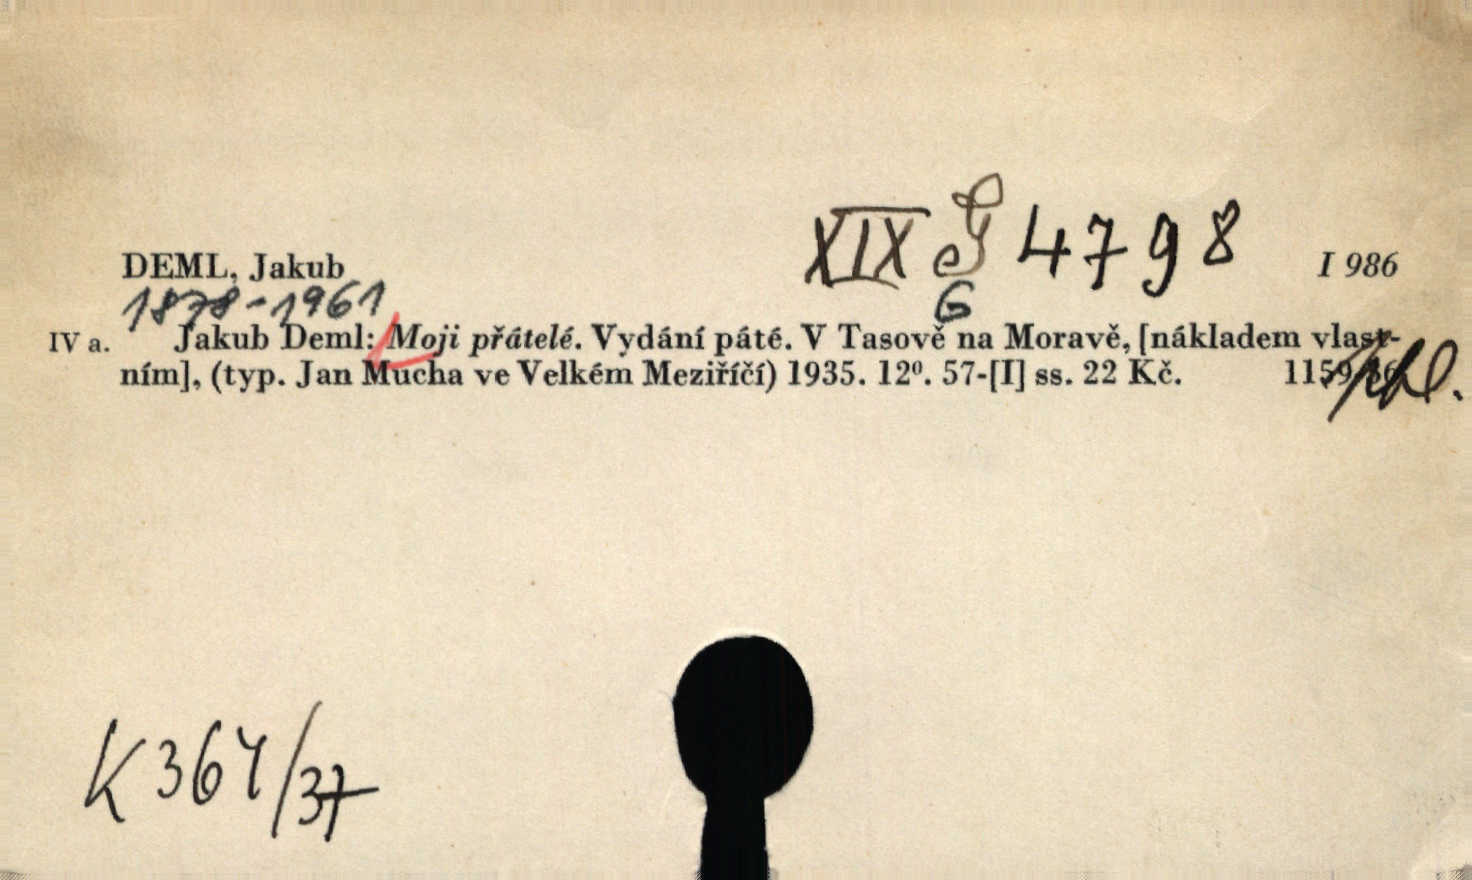 XIX G 4798
G
DEML, Jakub
I 986
1878-1961
IV a. Jakub Deml: Moji přátelé. Vydání páté. V Tasově na Moravě, [nákladem vlast-
ním], (typ. Jan Mucha ve Velkém Meziříčí) 1935. 12⁰. 57-[I] ss. 22 Kč.
K 364/37